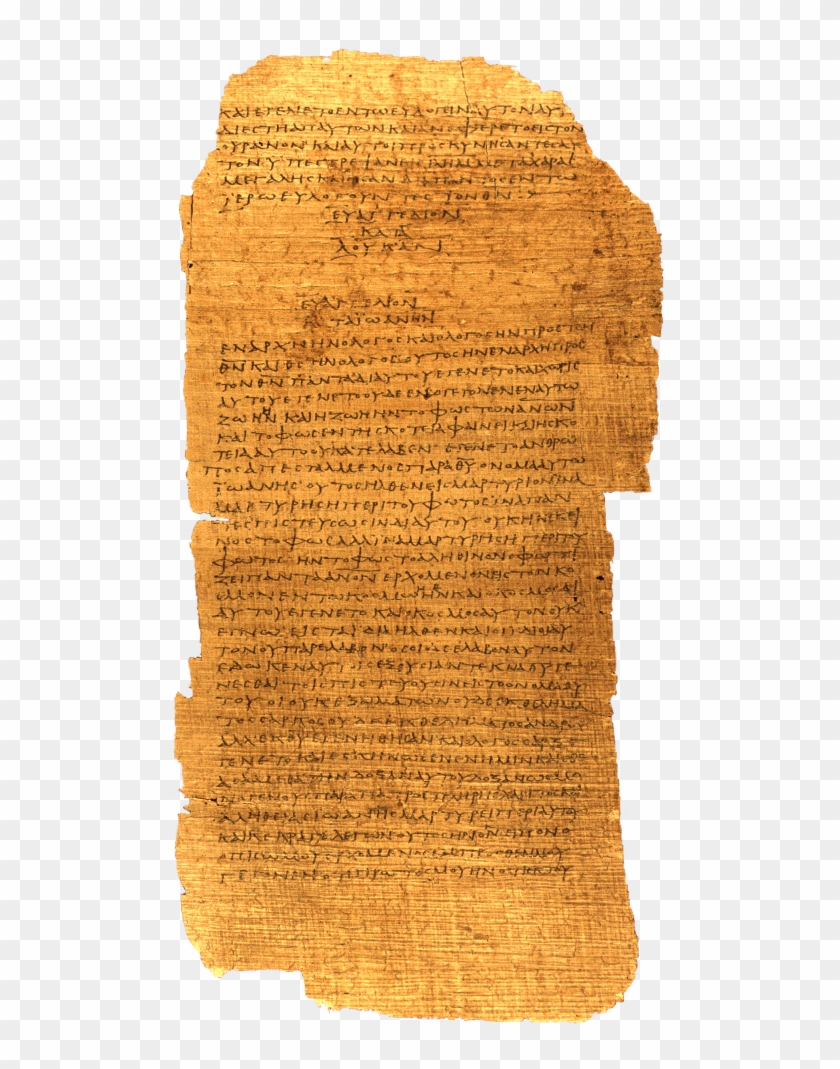 ΚΑΙΕΓΕΝΕΤΟΕΝΤΩΕΥΛΟΓΕΙΝΑΥΤΟΝΑΥ
ΔΙΕϹΤΗΑΠΑΥΤΩΝΚΑΙΑΝΕΦΕΡΕΤΟΕΙϹΤΟΝ
ΟΥΡΑΝΟΝΚΑΙΑΥΤΟΙΠΡΟϹΚΥΝΗϹΑΝΤΕϹΑΥ
ΤΟΝΥΠΕϹΤΡΕΨΑΝ ΜΕΤΑΧΑΡΑϹ
ΜΕΓΑΛΗϹΚΑΙΗϹΑΝΔΙΑΠΑΝΤΟϹΕΝΤΩ
ΪΕΡΩΕΥΛΟΓΟΥΝΤΕϹΤΟΝΘΝ
ΕΥΑΓΓΕΛΙΟΝ
ΚΑΤΑ
ΛΟΥΚΑΝ
ΕΥΑΓΓΕΛΙΟΝ
ΚΑΤΑΪΩΑΝΗΝ
ΕΝΑΡΧΗΗΝΟΛΟΓΟϹΚΑΙΟΛΟΓΟϹΗΝΠΡΟϹΤΟΝ
ΘΝΚΑΙΘϹΗΝΟΛΟΓΟϹΟΥΤΟϹΗΝΕΝΑΡΧΗΠΡΟϹ
ΤΟΝΘΝΠΑΝΤΑΔΙΑΥΤΟΥΕΓΕΝΕΤΟΚΑΙΧΩΡΙϹ
ΑΥΤΟΥΕΓΕΝΕΤΟΟΥΔΕΕΝΟΓΕΓΟΝΕΝΕΝΑΥΤΩ
ΖΩΗΝΚΑΙΗΖΩΗΗΝΤΟΦΩϹΤΩΝΑΝΩΝ
ΚΑΙΤΟΦΩϹΕΝΤΗϹΚΟΤΕΙΑΦΑΙΝΕΙΚΑΙΗϹΚΟ
ΤΕΙΑΑΥΤΟΟΥΚΑΤΕΛΑΒΕΝΕΓΕΝΕΤΟΑΝΘΡΩ
ΠΟϹΑΠΕϹΤΑΛΜΕΝΟϹΠΑΡΑΘΥΟΝΟΜΑΑΥΤΩ
ΪΩΑΝΗϹΟΥΤΟϹΗΛΘΕΝΕΙϹΜΑΡΤΥΡΙΟΝΪΝΑ
ΜΑΡΤΥΡΗϹΗΠΕΡΙΤΟΥΦΩΤΟϹΪΝΑΠΑΝ
ΤΕϹΠΙϹΤΕΥϹΩϹΙΝΔΙΑΥΤΟΥΟΥΚΗΝΕΚΕΙ
ΝΟϹΤΟΦΩϹΑΛΛΙΝΑΜΑΡΤΥΡΗϹΗΠΕΡΙΤΟΥ
ΦΩΤΟϹΗΝΤΟΦΩϹΤΟΑΛΗΘΙΝΟΝΟΦΩΤΙ
ΖΕΙΠΑΝΤΑΑΝΟΝΕΡΧΟΜΕΝΟΝΕΙϹΤΟΝΚΟ
ϹΜΟΝΕΝΤΩΚΟϹΜΩΗΝΚΑΙΟΚΟϹΜΟϹΔΙ
ΑΥΤΟΥΕΓΕΝΕΤΟΚΑΙΟΚΟϹΜΟϹΑΥΤΟΝΟΥΚ
ΕΓΝΩΕΙϹΤΑΪΔΙΑΗΛΘΕΝΚΑΙΟΙΪΔΙΟΙΑΥ
ΤΟΝΟΥΠΑΡΕΛΑΒΟΝΟϹΟΙΔΕΕΛΑΒΟΝΑΥΤΟΝ
ΕΔΩΚΕΝΑΥΤΟΙϹΕΞΟΥϹΙΑΝΤΕΚΝΑΘΥΓΕ
ΝΕϹΘΑΙΤΟΙϹΠΙϹΤΕΥΟΥϹΙΝΕΙϹΤΟΟΝΟΜΑΑΥ
ΤΟΥΟΙΟΥΚΕΞΑΙΜΑΤΩΝΟΥΔΕΕΚΘΕΛΗΜΑ
ΤΟϹϹΑΡΚΟϹΟΥΔΕΕΚΘΕΛΗΜΑΤΟϹΑΝΔΡΟϹ
ΑΛΛΕΚΘΥΕΓΕΝΗΘΗϹΑΝΚΑΙΟΛΟΓΟϹϹΑΡΞΕ
ΓΕΝΕΤΟΚΑΙΕϹΚΗΝΩϹΕΝΕΝΗΜΙΝΚΑΙΕΘΕ
ΑϹΑΜΕΘΑΤΗΝΔΟΞΑΝΑΥΤΟΥΔΟΞΑΝΩϹΜΟ
ΝΟΓΕΝΟΥϹΠΑΡΑΠΑΤΡΟϹΠΛΗΡΗϹΧΑΡΙΤΟϹΚΑΙ
ΑΛΗΘΕΙΑϹΪΩΑΝΗϹΜΑΡΤΥΡΕΙΠΕΡΙΑΥΤΟΥ
ΚΑΙΚΕΚΡΑΓΕΛΕΓΩΝΟΥΤΟϹΗΝΟΝΕΙΠΟΝΟ
ΟΠΙϹΩΜΟΥΕΡΧΟΜΕΝΟϹΕΜΠΡΟϹΘΕΝΜΟΥ
ΓΕΓΟΝΕΝΟΤΙΠΡΩΤΟϹΜΟΥΗΝΟΤΙΕΚΤΟΥ